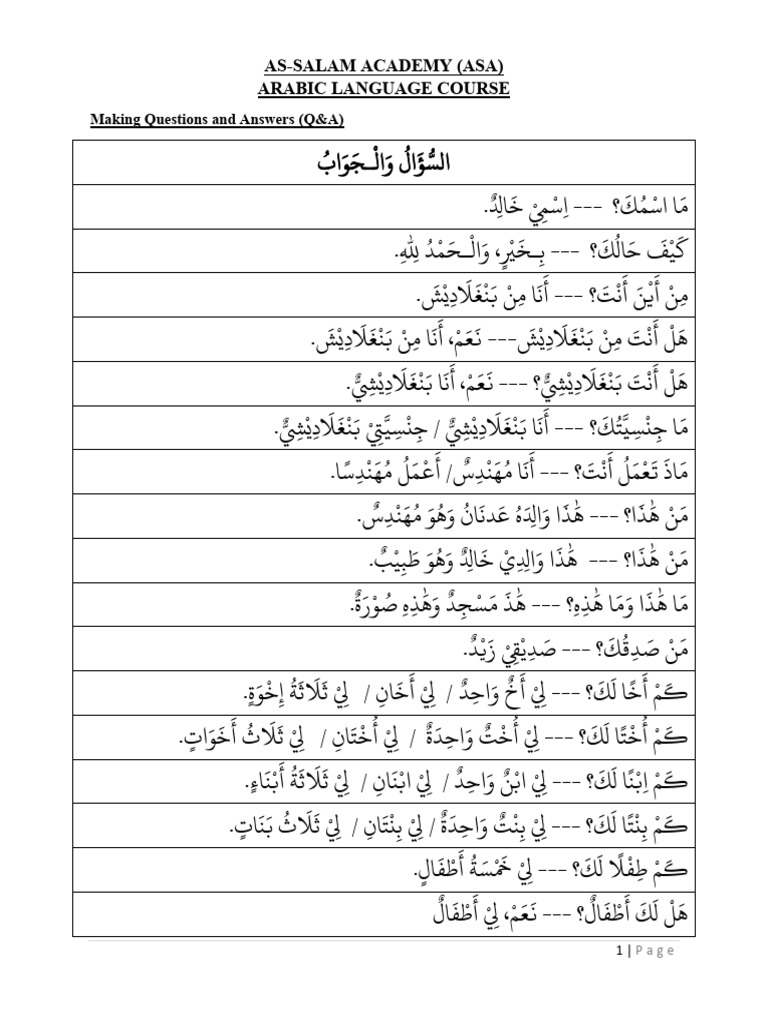 AS-SALAM ACADEMY (ASA)
ARABIC LANGUAGE COURSE
Making Questions and Answers (Q&A)
السُّؤَالُ وَالْـجَوَابُ
مَا اسْمُكَ؟ --- اِسْمِيْ خَالِدٌ.
كَيْفَ حَالُكَ؟ --- بِـخَيْرٍ، وَالْـحَمْدُ لِلّٰهِ.
مِنْ أَيْنَ أَنْتَ؟ --- أَنَا مِنْ بَنْغَلَادِيْشَ.
هَلْ أَنْتَ مِنْ بَنْغَلَادِيْشَ--- نَعَمْ، أَنَا مِنْ بَنْغَلَادِيْشَ.
هَلْ أَنْتَ بَنْغَلَادِيْشِيٌّ؟ --- نَعَمْ، أَنَا بَنْغَلَادِيْشِيٌّ.
مَا جِنْسِيَّتُكَ؟ --- أَنَا بَنْغَلَادِيْشِيٌّ / جِنْسِيَّتِيْ بَنْغَلَادِيْشِيٌّ.
مَاذَ تَعْمَلُ أَنْتَ؟ --- أَنَا مُهَنْدِسٌ/ أَعْمَلُ مُهَنْدِسًا.
مَنْ هٰذَا؟ --- هٰذَا وَالِدَهُ عَدنَانُ وَهُوَ مُهَنْدِسٌ.
مَنْ هٰذَا؟ --- هٰذَا وَالِدِيْ خَالِدٌ وَهُوَ طَبِيْبٌ.
مَا هٰذَا وَمَا هٰذِهِ؟ --- هٰذَ مَسْجِدٌ وَهٰذِهِ صُوْرَةٌ.
مَنْ صَدِقُكَ؟ --- صَدِيْقِيْ زَيْدٌ.
كَمْ أَخًا لَكَ؟ --- لِيْ أَخٌ وَاحِدٌ / لِيْ أَخَانِ / لِيْ ثَلَاثَةُ إِخْوَةٍ.
كَمْ أُخْتًا لَكَ؟ --- لِيْ أُخْتٌ وَاحِدَةٌ / لِيْ أُخْتَانِ / لِيْ ثَلَاثُ أَخَوَاتٍ.
كَمْ اِبْنًا لَكَ؟ --- لِيْ ابْنٌ وَاحِدٌ / لِيْ ابْنَانِ / لِيْ ثَلَاثَةُ أَبْنَاءٍ.
كَمْ بِنْتًا لَكَ؟ --- لِيْ بِنْتٌ وَاحِدَةٌ / لِيْ بِنْتَانِ / لِيْ ثَلَاثُ بَنَاتٍ.
كَمْ طِفْلًا لَكَ؟ --- لِيْ خَمْسَةُ أَطْفَالٍ.
هَلْ لَكَ أَطْفَالٌ؟ --- نَعَمْ، لِيْ أَطْفَالٌ
1 | Page